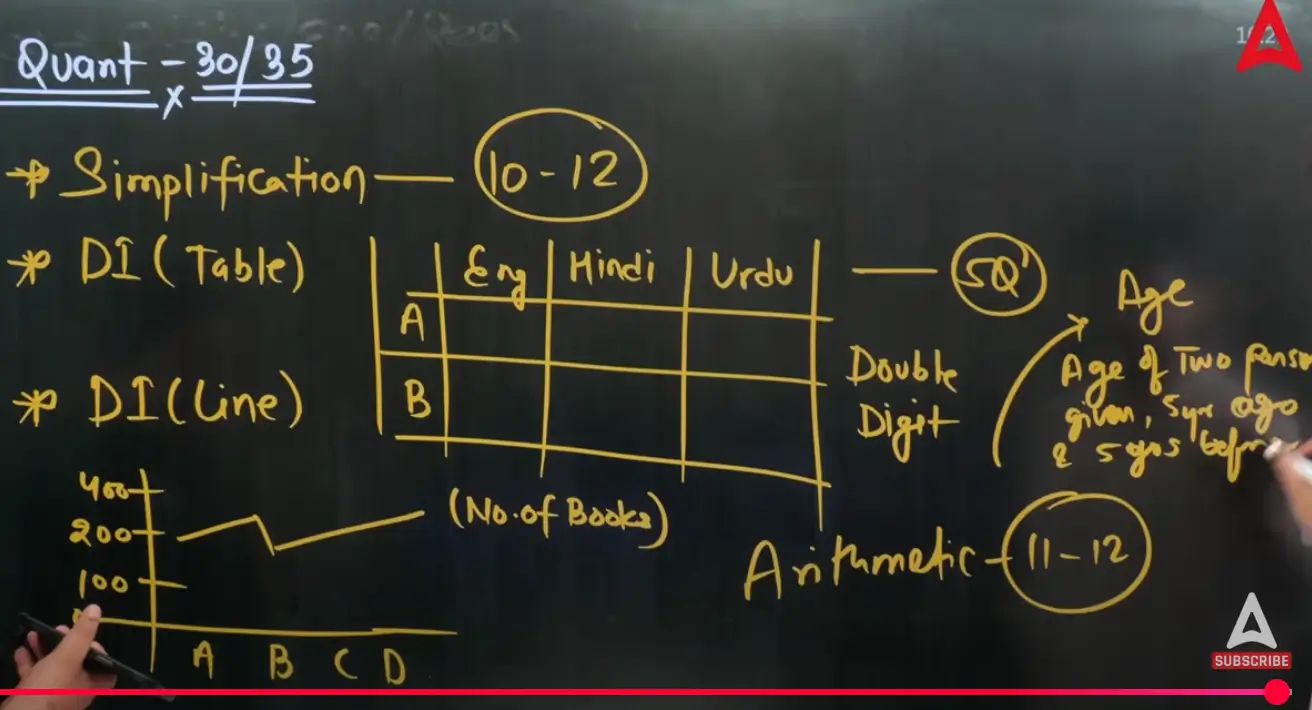 Quant - 30/35
x
* Simplification — 10-12
* DI (Table)
Eng Hindi Urdu — 5Q
A
B
Double
Digit
Age
Age of Two
given, 5yrs ago
& 5 yrs
* DI (Line)
400
200
100
A B C D
(No. of Books)
Arithmetic - 11-12
SUBSCRIBE